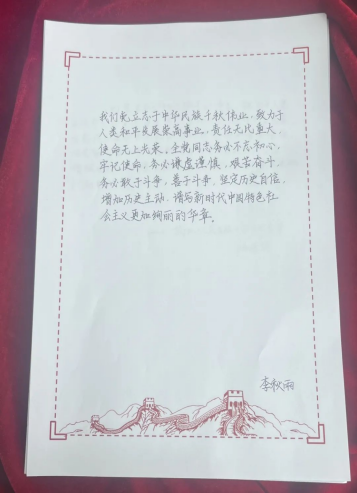 我们党立志于中华民族千秋伟业，致力于
人类和平发展崇高事业，责任无比重大，
使命无上光荣。全党同志务必不忘初心、
牢记使命，务必谦虚谨慎、艰苦奋斗，
务必敢于斗争、善于斗争，坚定历史自信，
增加历史主动，谱写新时代中国特色社
会主义更加绚丽的华章。
李秋雨